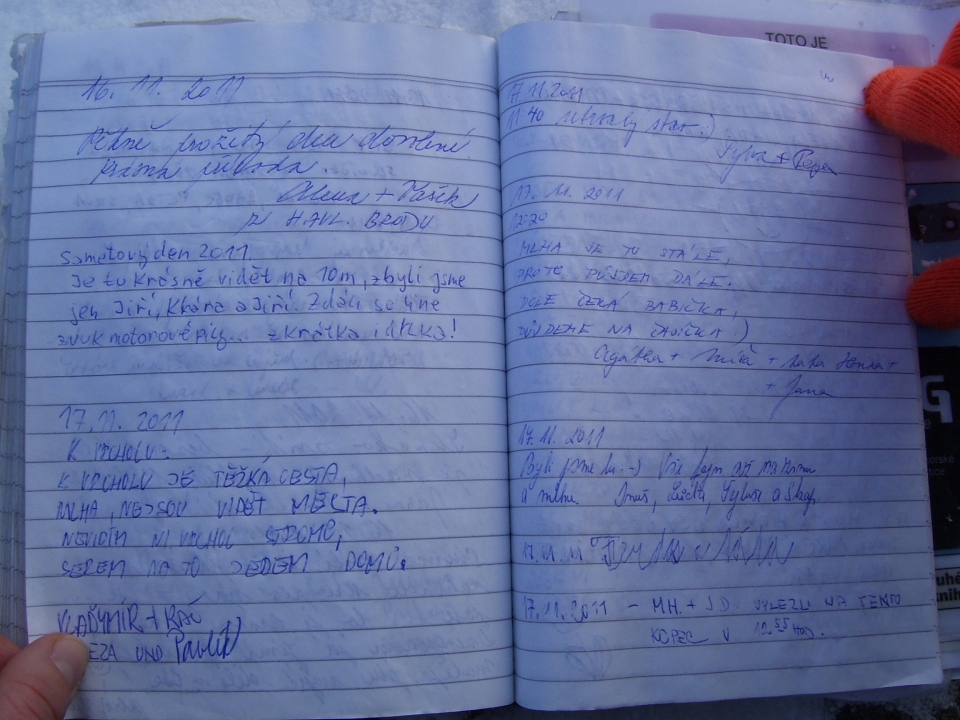 16. 11. 2011
Pěkně prožitý den dovolené
krásná příroda.
Alena + Vašek
z HAVL. BRODU
Sametový den 2011.
Je tu krásně vidět na 10m, zbyli jsme
jen Jiří, Klára a Jiří. Zdáli se line
zvuk motorové pily... zkrátka idilka!
17.11. 2011
K VRCHOLU:
K VRCHOLU JE TĚŽKÁ CESTA,
MLHA, NEJSOU VIDĚT MĚSTA.
NEVIDÍM NI VRCHOL STROMŮ,
SEREM NA TO JEDEM DOMŮ.
VLADYMÍR + RAŠ
UND Pavlík
17.11.2011
11.40 :)
Sylva + Pepa
17. 11. 2011
12:20
MLHA JE TU STÁLE,
PROTO PŮJDEM DÁLE.
DOLE ČEKÁ BABIČKA,
PŮJDEME NA ČAJÍČKA :)
Agátka + + +
+ Jana
17.11. 2011
Byli jsme tu :-) Vše fajn až na zimu
a mlhu. a
17.11.11
17.11.2011 - M.H. + J.D. VYLEZLI NA TENTO
KOPEC V 12 55 Hod.
TOTO JE
G